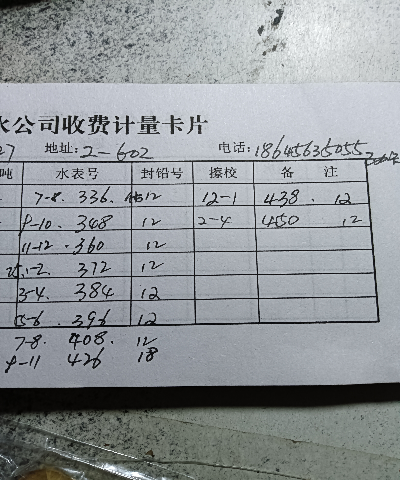 水公司收费计量卡片
27 地址: 2-602 电话: 18645635055
吨 水表号 封铅号 擦校 备 注
7-8. 336. 12 12-1 438. 12
9-10. 348 12 2-4 450 12
11-12. 360 12
25.1-2. 372 12
3-4. 384 12
5-6. 396 12
7-8. 408. 12
9-11 426 18